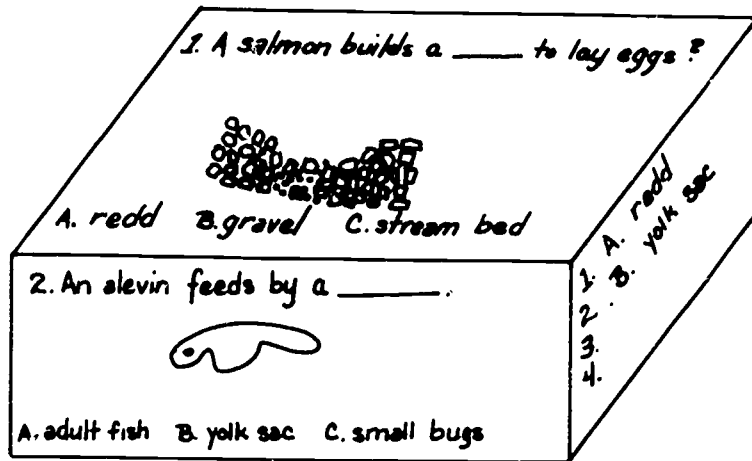 1. A salmon builds a _____ to lay eggs?
A. redd B. gravel C. stream bed
2. An alevin feeds by a _______.
A. adult fish B. yolk sac C. small bugs
1. A. redd
2. B. yolk sac
3.
4.